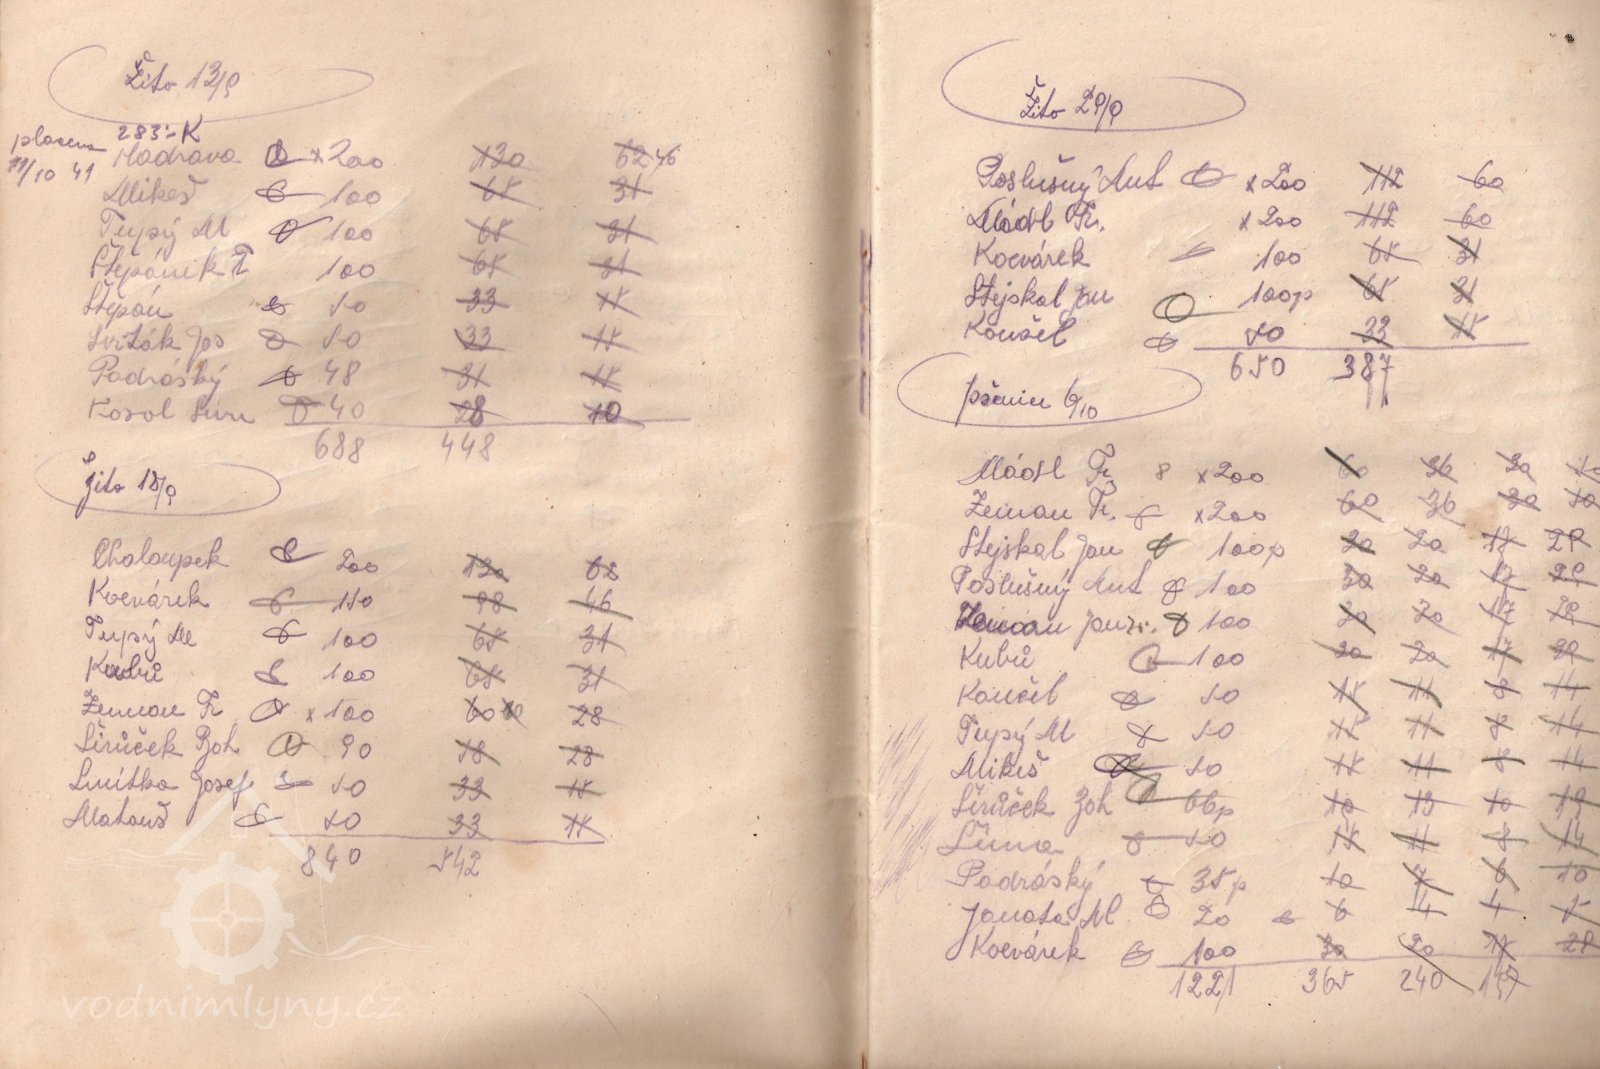 Žito 13/9
placeno 283·- K
11/10 41 Hadrava × 200 130 62 46
Mikeš 100 65 31
Tupý M 100 65 31
Štěpánek F 100 65 31
Štěpán 50 33 15
Sviták Jos 50 33 15
Podráský 48 31 15
Kosol 40 28 10
688 448
Žito 18/9
Chaloupek 200 130 62
Kovárek 150 98 46
Tupý M 100 65 31
Kubů 100 65 31
Zeman Fr × 100 60 28
Širůček Boh 90 58 28
Smitka Josef 50 33 15
Matouš 50 33 15
840 542
vodnimlyny.cz
Žito 29/9
Poslušný Ant × 200 112 60
Mádl Fr. × 200 112 60
Kovárek 100 65 31
Stejskal Jan 100p 65 31
Koučel 50 33 15
650 387
pšenice 6/10
Mádl Fr 8 × 200 60 36 30
Zeman Fr. × 200 60 36 30
Stejskal Jan 100p 30 20 17 29
Poslušný Ant 100 30 20 17 29
Zeman Jan 100 30 20 17 29
Kubů 100 30 20 17 29
Koučel 50 15 11 8 14
Tupý M 50 15 11 8 14
Mikeš 50 15 11 8 14
Širůček Boh 66p 20 13 10 19
Šůna 50 15 11 8 14
Podráský 35p 10 7 6 10
Janata M 20 6 4 4 5
Kovárek 100 30 20 17 29
1221 365 240 157